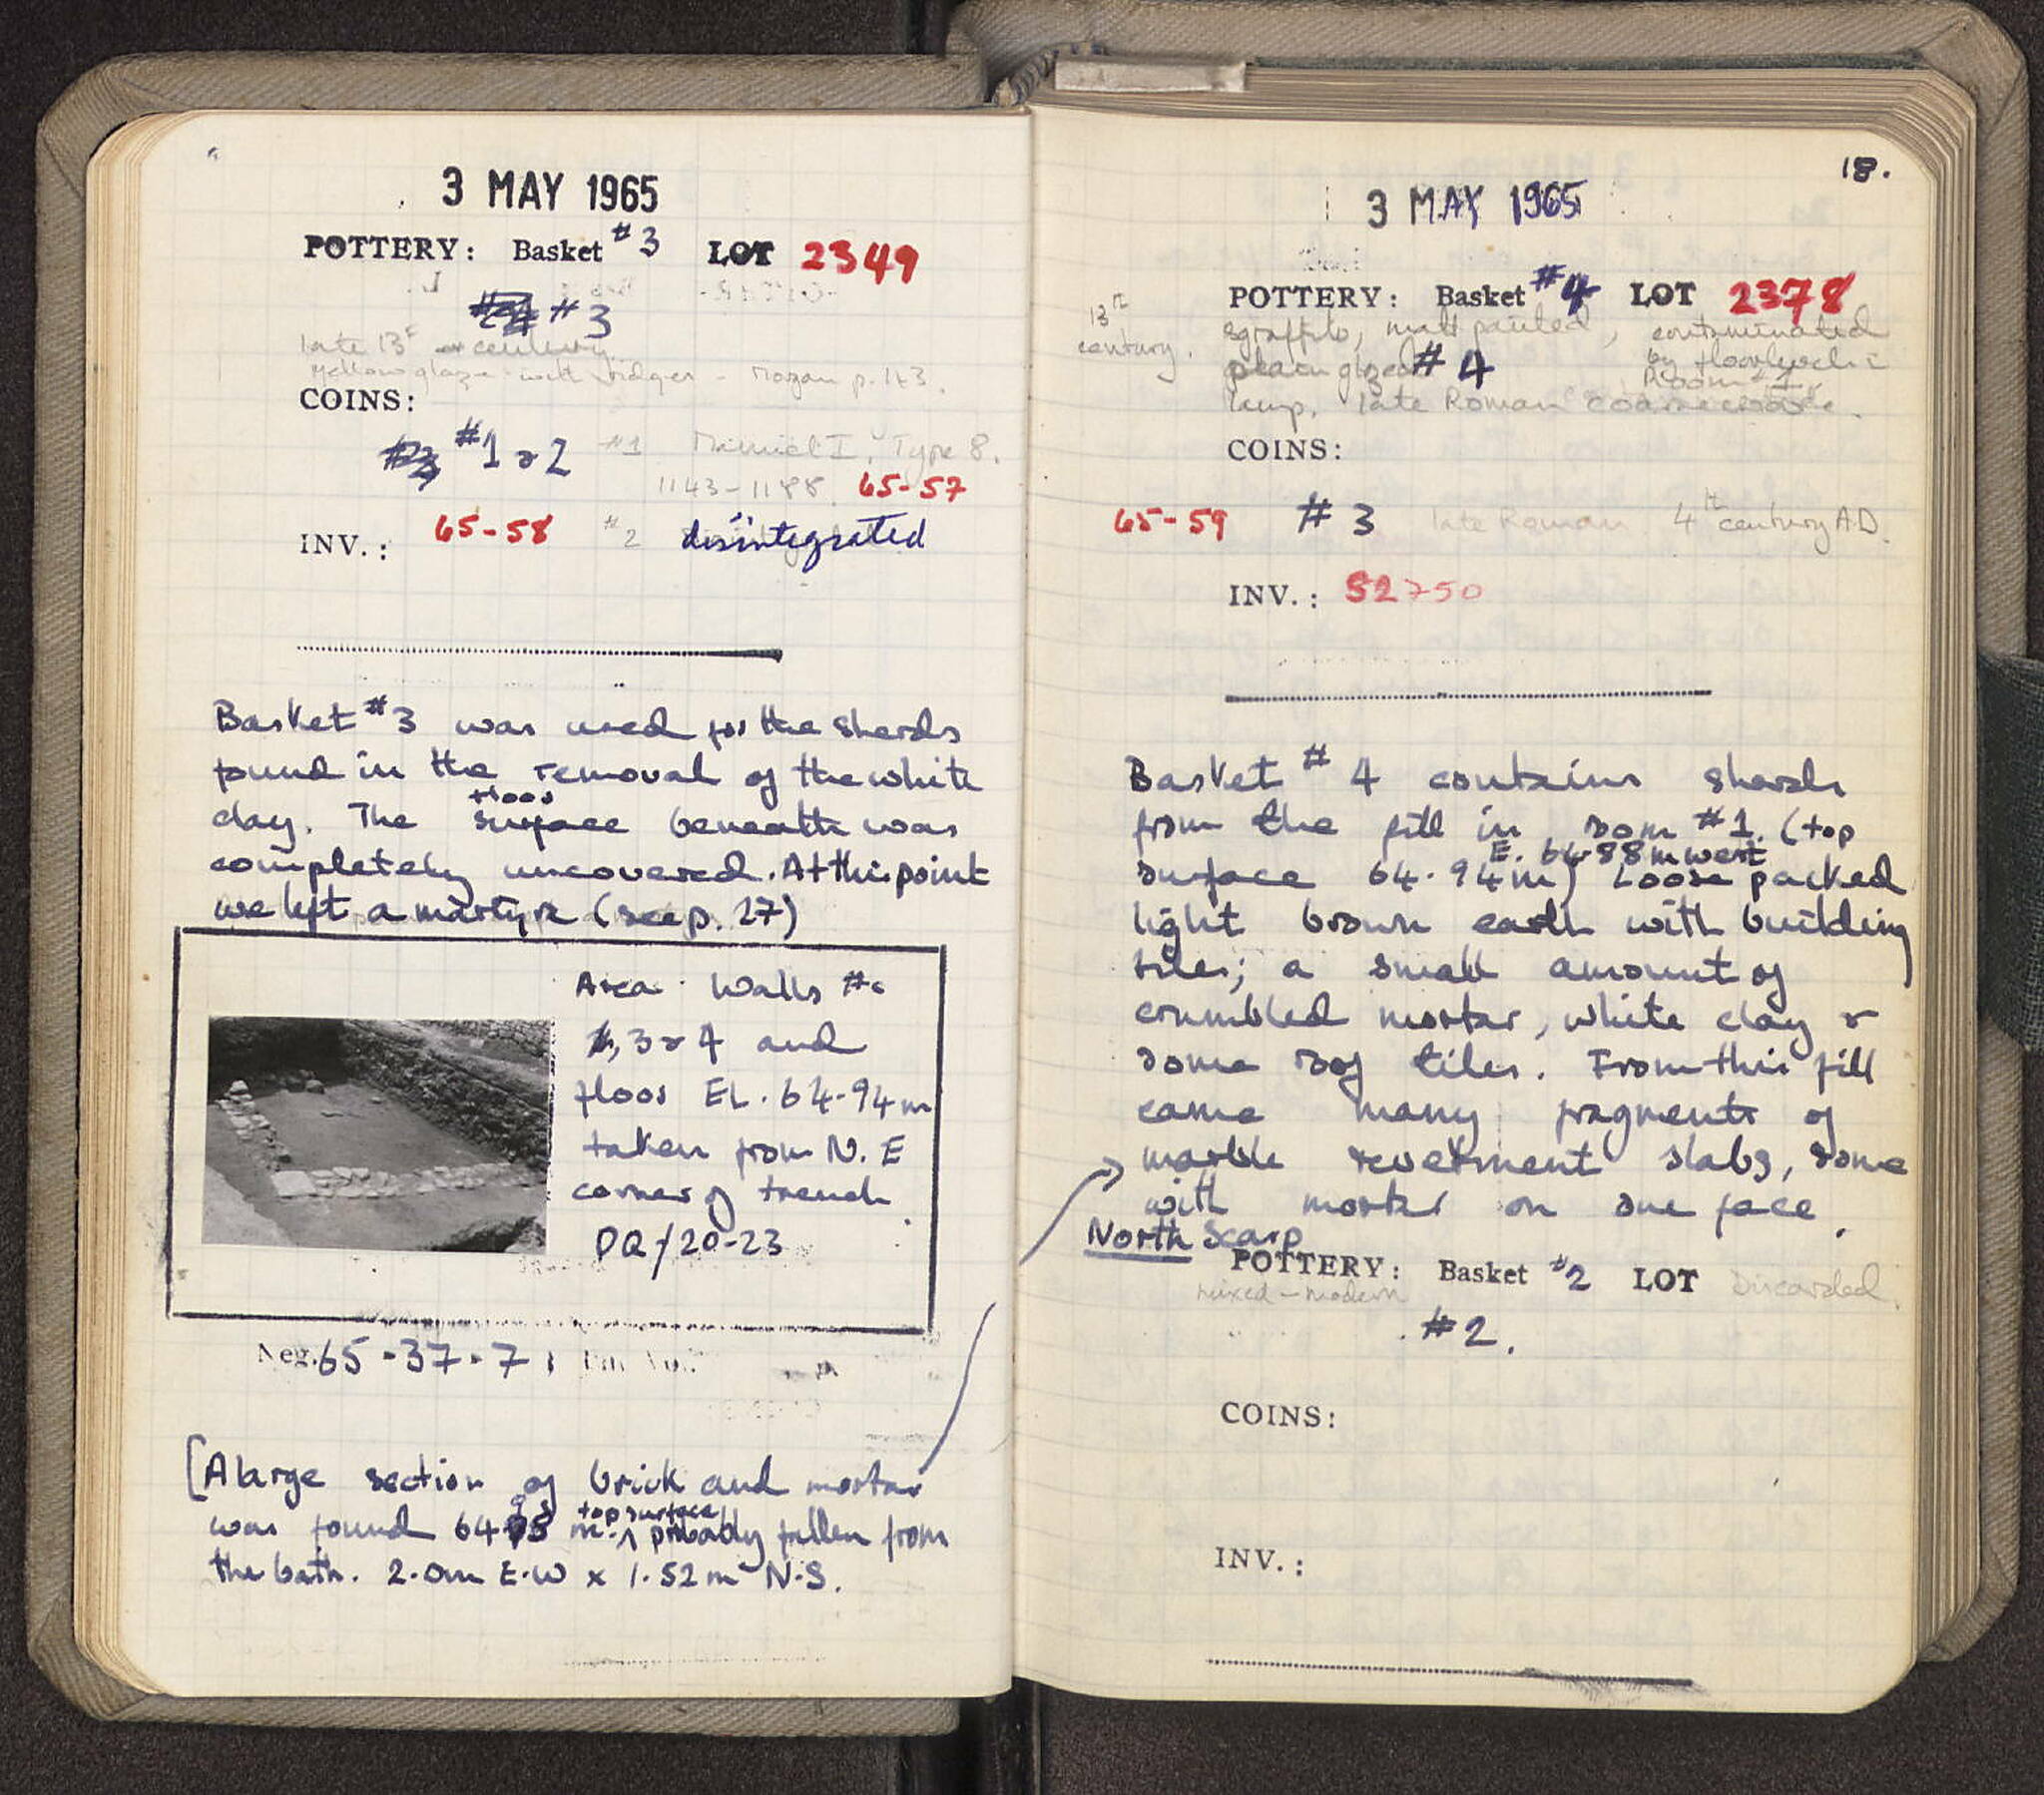 3 MAY 1965
POTTERY: Basket #3 LOT 2349
#3
late 13th century
Yellow glaze with ridges - Morgan p. 143.
COINS:
#1 & 2 #1 Manuel I, Type 8.
1143-1188 65-57
INV.: 65-58 #2 disintegrated
Basket #3 was used for the sherds
found in the removal of the white
clay. The floor surface beneath was
completely uncovered. At this point
we left a martyra (see p. 17)
Area: Walls #s
3 & 4 and
floor EL. 64.94m
taken from N.E
corner of trench
DQ/20-23
Neg. 65-37-7
[A large section of brick and mortar
was found m. top surface probably fallen from
the bath. 2.0m E-W x 1.52m N-S.
18.
3 MAY 1965
POTTERY: Basket #4 LOT 2378
13th century.
sgraffito, matt painted, contaminated
plain glazed #4 by
Room #1
lamp, late Roman coarseware.
COINS:
65-59 #3 late Roman 4th century A.D.
INV.: 52750
Basket #4 contains sherds
from the fill in room #1. (top
E. 64.88m west
surface 64.94m) Loose packed
light brown earth with building
tiles; a small amount of
crumbled mortar, white clay &
some roof tiles. From this fill
came many fragments of
marble revetment slabs, some
with mortar on one face.
North Scarp
POTTERY: Basket #2 LOT Discarded.
mixed - modern
#2.
COINS:
INV.: